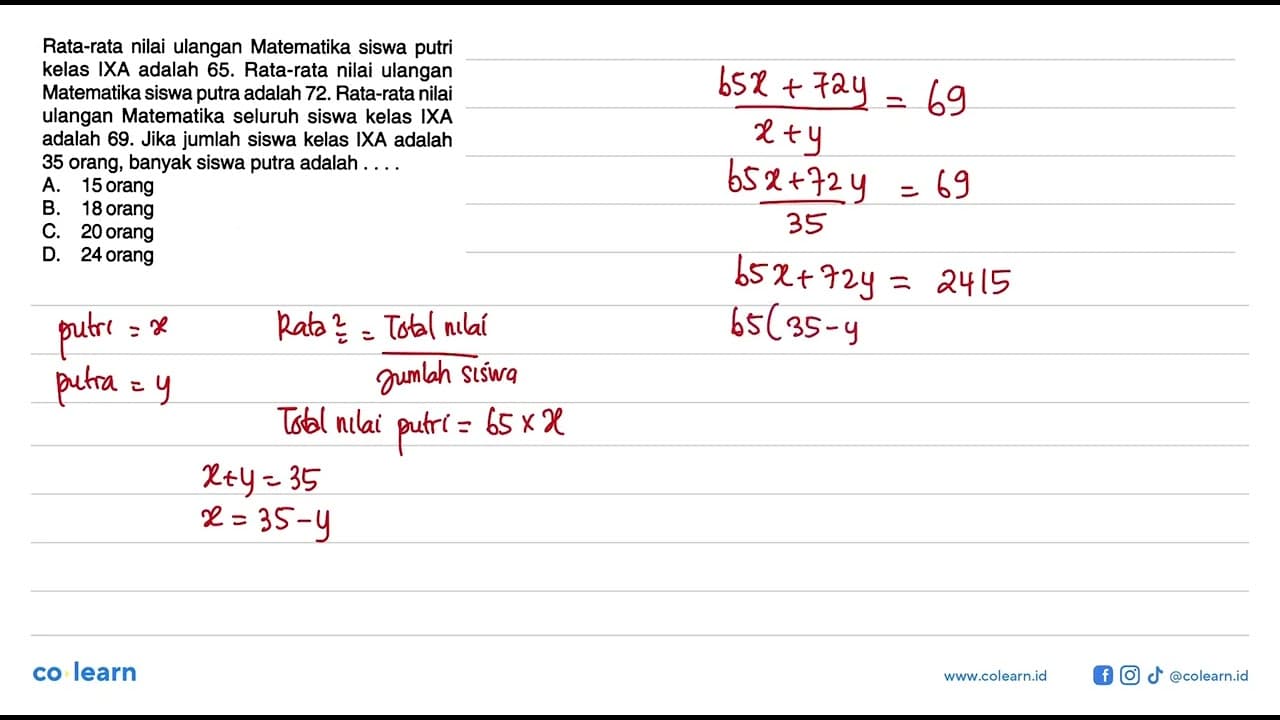 Rata-rata nilai ulangan Matematika siswa putri
kelas IXA adalah 65. Rata-rata nilai ulangan
Matematika siswa putra adalah 72. Rata-rata nilai
ulangan Matematika seluruh siswa kelas IXA
adalah 69. Jika jumlah siswa kelas IXA adalah
35 orang, banyak siswa putra adalah . . . .
A. 15 orang
B. 18 orang
C. 20 orang
D. 24 orang
putri = x
putra = y
Rata2 = Total nilai
Jumlah siswa
Total nilai putri = 65 × x
x + y = 35
x = 35 - y
65x + 72y = 69
x + y
65x + 72y = 69
35
65x + 72y = 2415
65(35 - y
co learn
www.colearn.id
@colearn.id